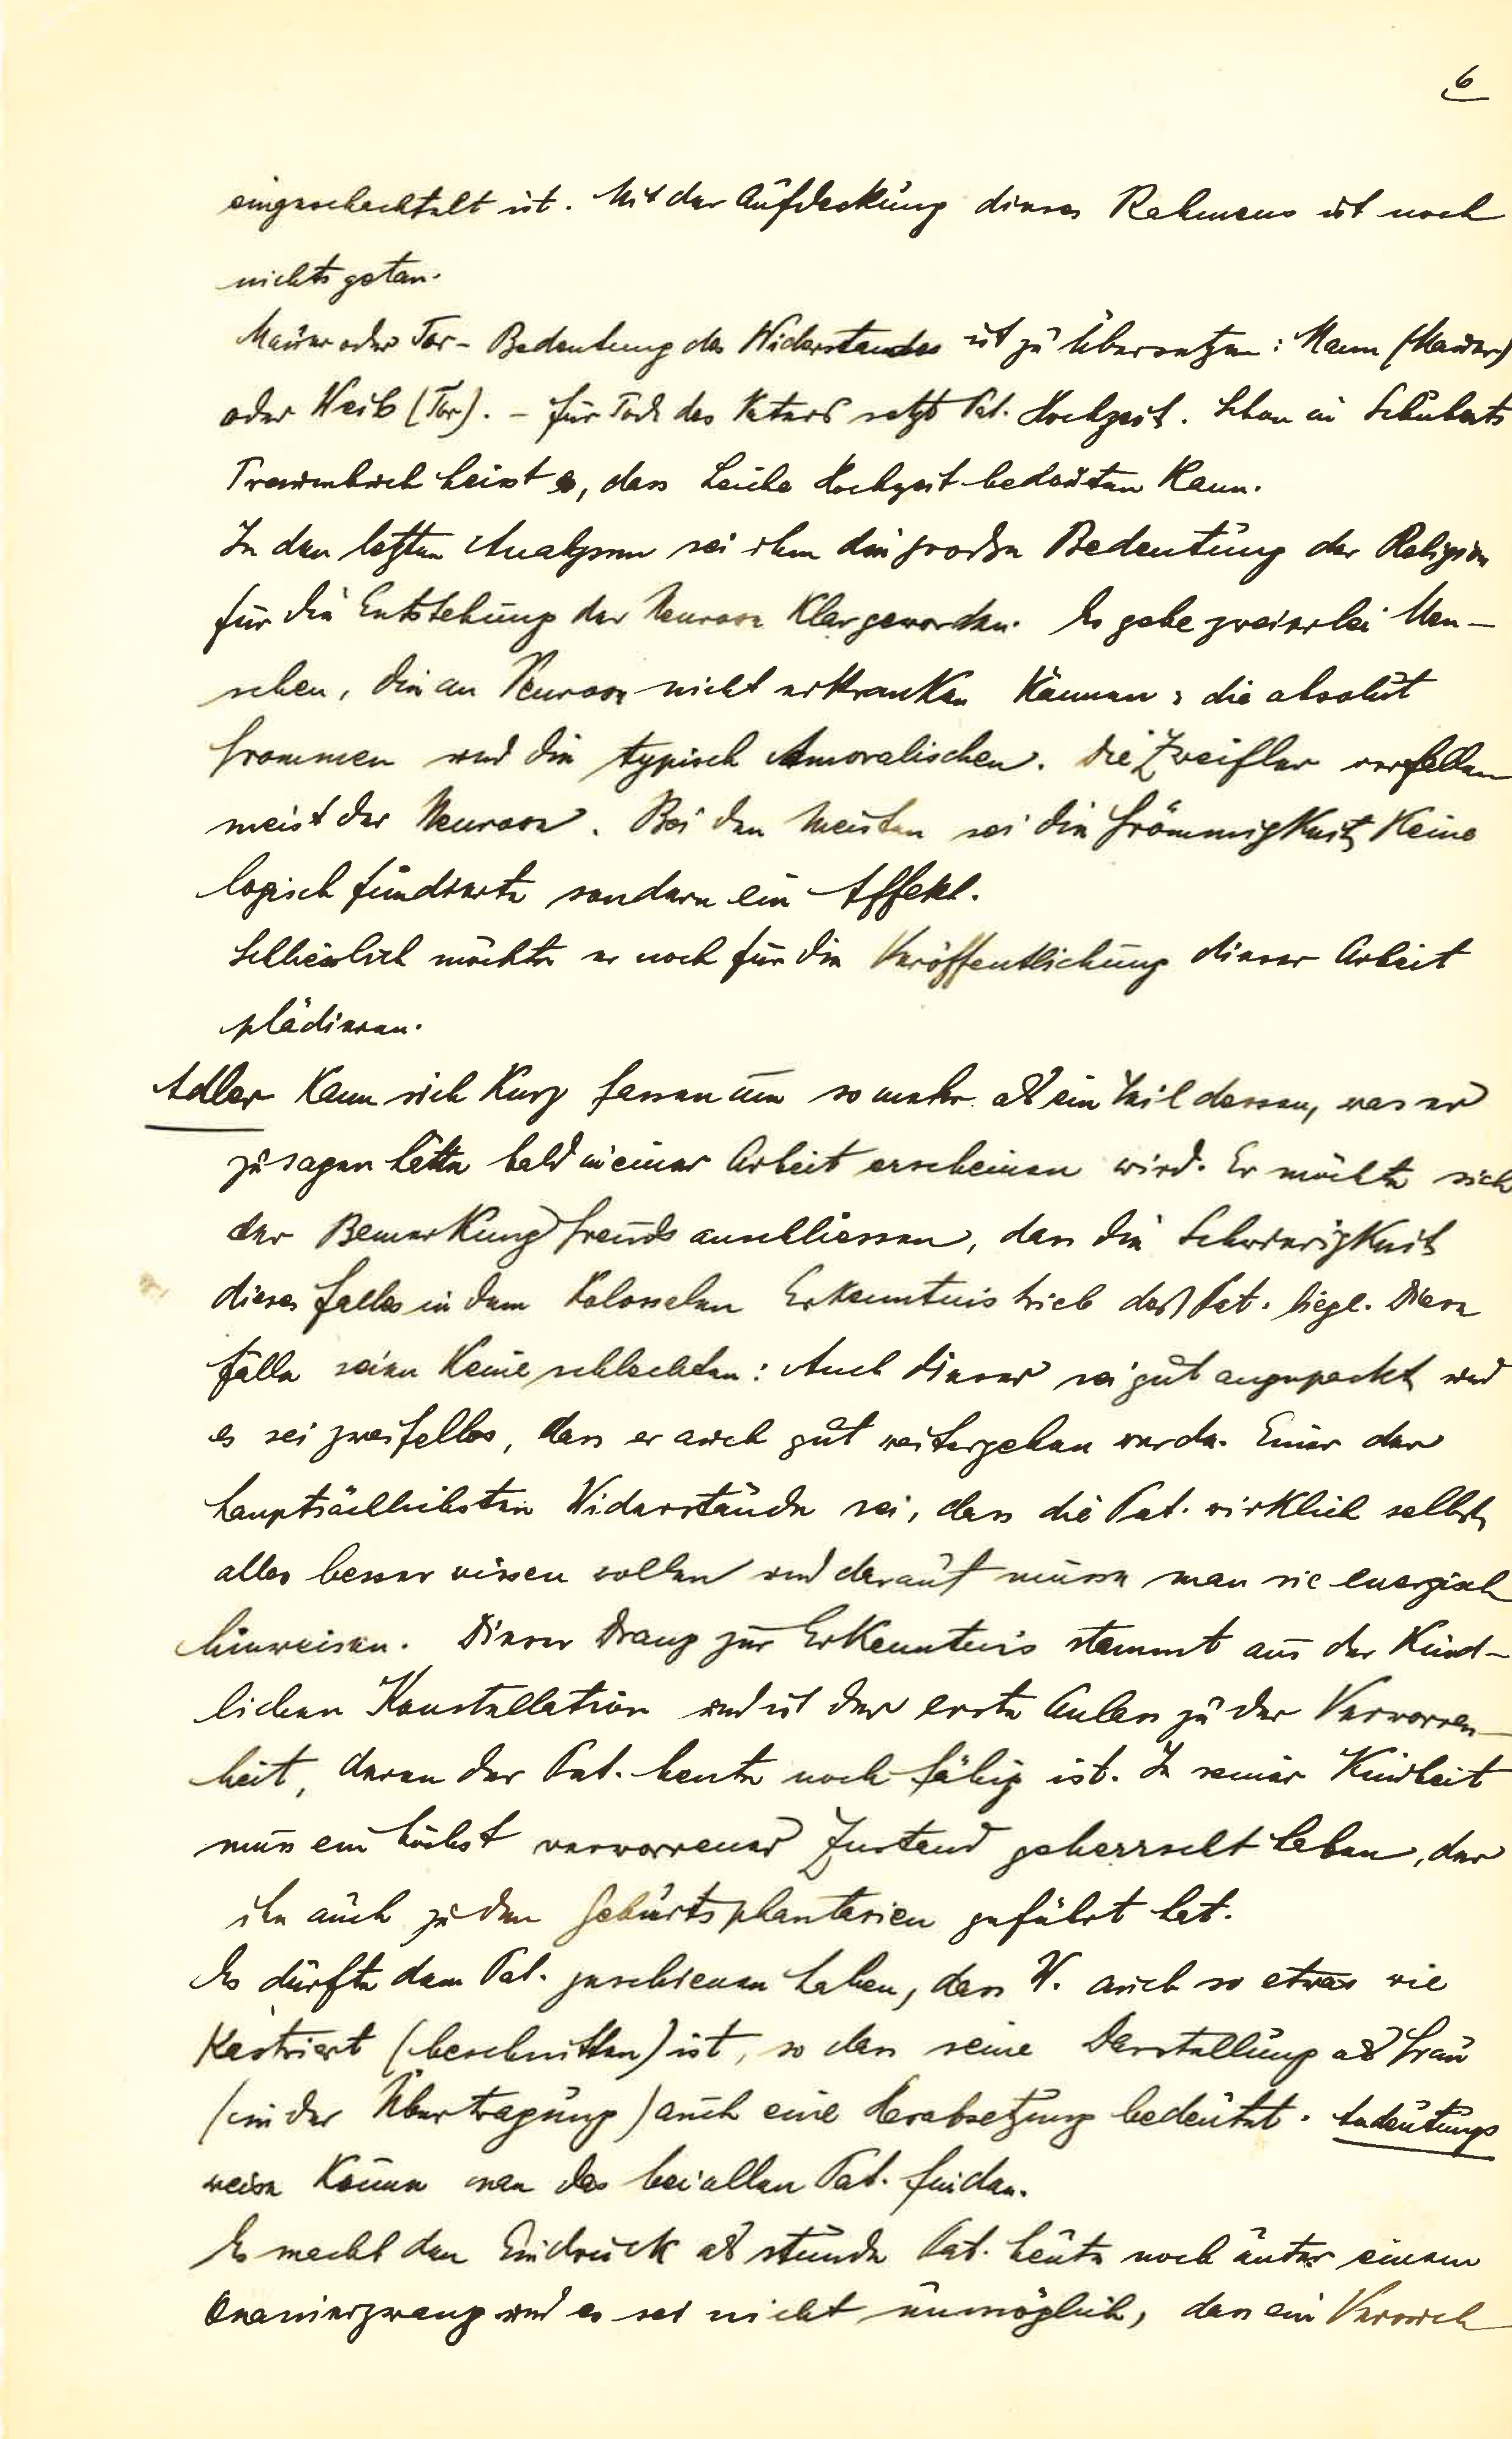 6
eingeschachtelt ist. Mit der Aufdeckung dieses Rahmens ist noch
nichts getan.
Mauer oder Tor - Bedeutung des Widerstandes ist zu übersetzen: Mann (Mauer)
oder Weib (Tor). - Für Tod des Vaters setzt Pat. Hochzeit. Schon in Schuberts
Traumbuch heisst es, dass Leiche Hochzeit bedeuten kann.
In den letzten Analysen sei ihm die große Bedeutung der Religion
für die Entstehung der Neurose klar geworden. Es gebe zweierlei Men-
schen, die an Neurose nicht erkranken können: die absolut
Frommen und die typisch Amoralischen. Die Zweifler verfallen
meist der Neurose. Bei den Meisten sei die Frömmigkeit keine
logisch fundierte sondern ein Affekt.
Schliesslich möchte er noch für die Veröffentlichung dieser Arbeit
plädieren.
Adler kann sich kurz fassen um so mehr als ein Teil dessen, was er
zu sagen hätte bald in einer Arbeit erscheinen wird. Er möchte sich
der Bemerkung Freuds anschliessen, dass die Schwierigkeit
dieses Falles in dem kolossalen Erkenntnistrieb des Pat. liegt. Diese
Fälle seien keine schlechten: Auch dieser sei gut angepackt und
es sei zweifellos, dass er auch gut weitergehen werde. Einer der
hauptsächlichsten Widerstände sei, dass die Pat. wirklich selbst
alles besser wissen wollen und darauf müsse man sie energisch
hinweisen. Dieser Drang zur Erkenntnis stammt aus der kind-
lichen Konstellation und ist der erste Anlass zu der Verworren-
heit, deren der Pat. heute noch fähig ist. In seiner Kindheit
muss ein höchst verworrener Zustand geherrscht haben, der
ihn auch zu den Geburtsphantasien geführt hat.
Es dürfte dem Pat. geschienen haben, dass W. auch so etwas wie
kastriert (beschnitten) ist, so dass seine Darstellung als Frau
(in der Übertragung) auch eine Herabsetzung bedeutet. Andeutungs
weise könne man das bei allen Pat. finden.
Es macht den Eindruck als stünde Pat. heute noch unter einem
Onanierzwang und es sei nicht unmöglich, dass ein Versuch